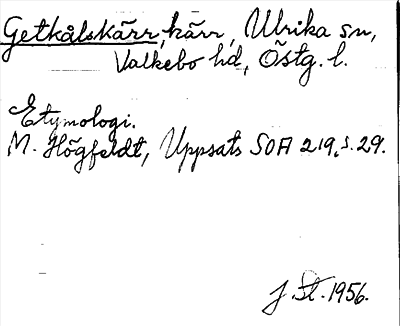 Getkålskärr, kärr, Ulrika sn,
Valkebo hd, Östg. l.
Etymologi.
M. Högfeldt, Uppsats SOA 219, s. 29.
J. St. 1956.